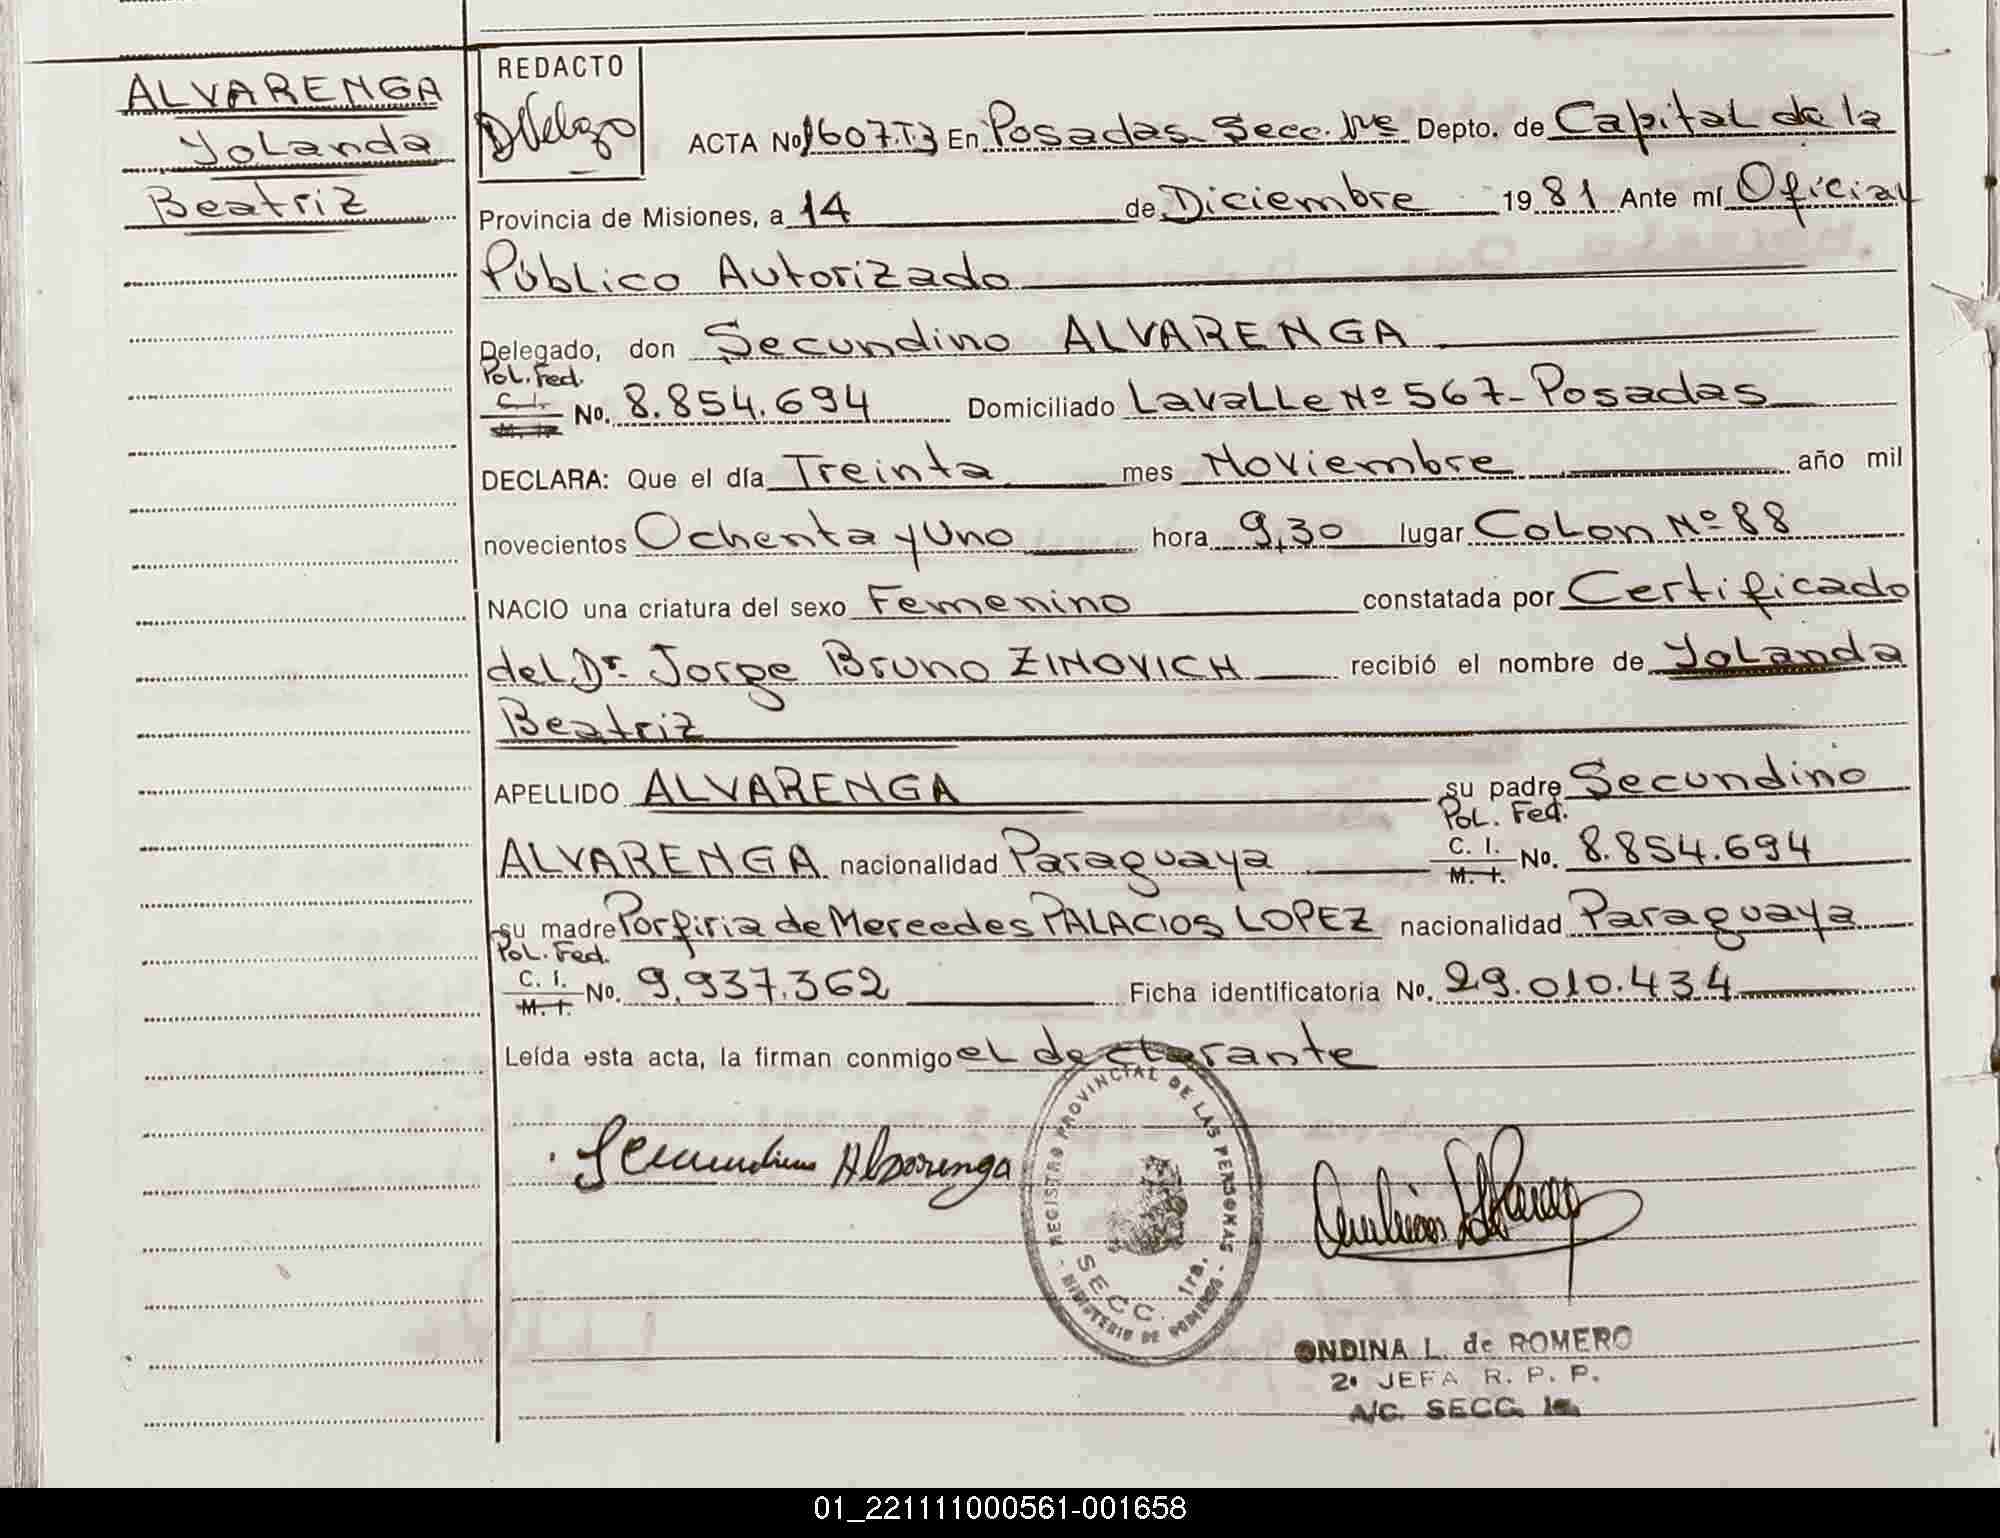 ALVARENGA
Yolanda
Beatriz
REDACTO
DVelozo
ACTA No 1607.T.3 En Posadas- Secc. 1ra Depto. de Capital de la
Provincia de Misiones, a 14 de Diciembre 1981 Ante mí Oficial
Público Autorizado
Delegado, don Secundino ALVARENGA
Pol. Fed.
C.I. M. I. No. 8.854.694 Domiciliado Lavalle Nº 567- Posadas
DECLARA: Que el día Treinta mes Noviembre año mil
novecientos Ochenta y Uno hora 9,30 lugar Colon Nº 88
NACIO una criatura del sexo Femenino constatada por Certificado
del Dr. Jorge Bruno ZINOVICH recibió el nombre de Yolanda
Beatriz
APELLIDO ALVARENGA su padre Secundino
Pol. Fed.
ALVARENGA nacionalidad Paraguaya C. I. M. I. No. 8.854.694
su madre Porfiria de Mercedes PALACIOS LOPEZ nacionalidad Paraguaya
Pol. Fed.
C. I. M. I. No. 9.937.362 Ficha identificatoria No. 29.010.434
Leída esta acta, la firman conmigo el declarante
Secundino Alvarenga
REGISTRO PROVINCIAL DE LAS PERSONAS
SECC. 1ra.
- MINISTERIO DE GOBIERNO -
ONDINA L. de ROMERO
2ª JEFA R. P. P.
A/C. SECC. 1a.
01_221111000561-001658